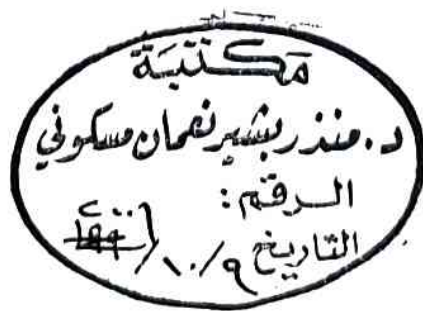 مكتبة
د. منذر بشير نعمان مسكوني
الرقم:
التاريخ ٩/١٠/